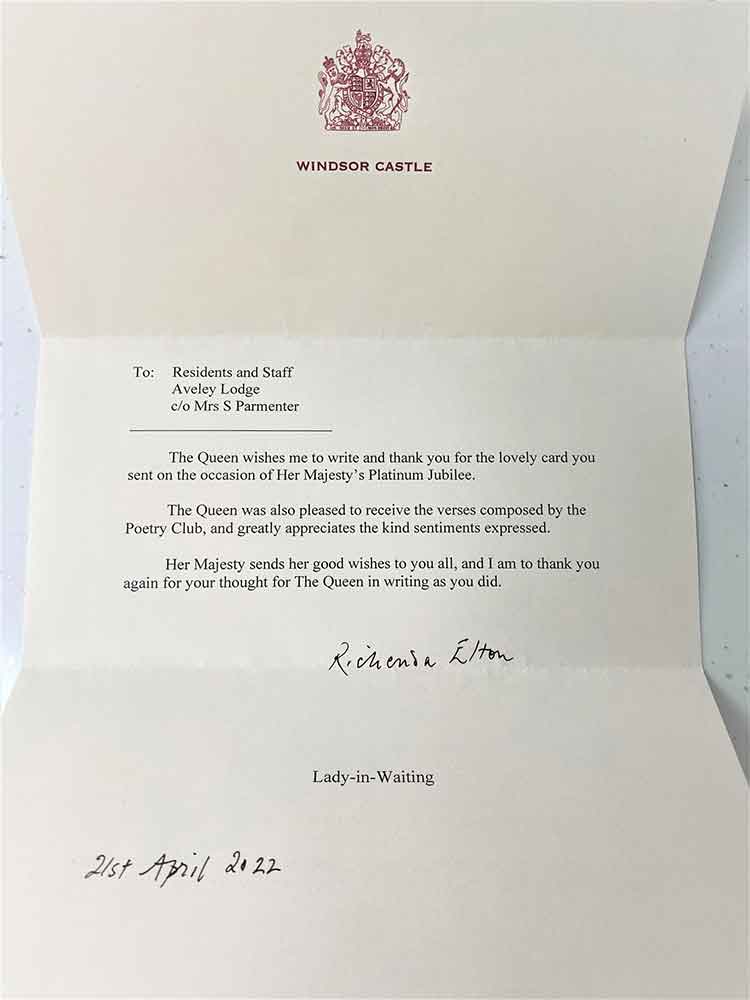 WINDSOR CASTLE
To: Residents and Staff
Aveley Lodge
c/o Mrs S Parmenter
The Queen wishes me to write and thank you for the lovely card you
sent on the occasion of Her Majesty's Platinum Jubilee.
The Queen was also pleased to receive the verses composed by the
Poetry Club, and greatly appreciates the kind sentiments expressed.
Her Majesty sends her good wishes to you all, and I am to thank you
again for your thought for The Queen in writing as you did.
Richenda Elton
Lady-in-Waiting
21st April 2022